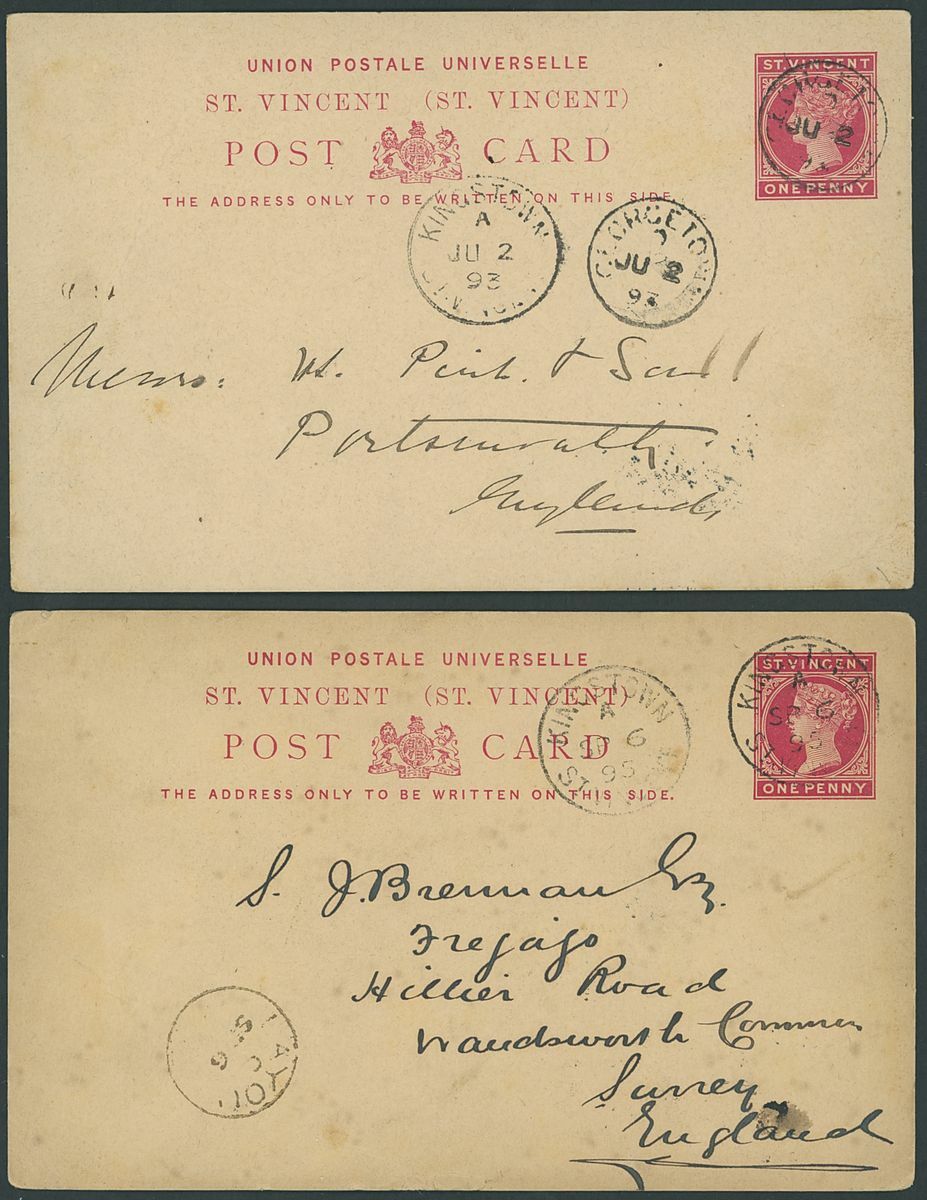 UNION POSTALE UNIVERSELLE
ST. VINCENT (ST. VINCENT)
POST CARD
THE ADDRESS ONLY TO BE WRITTEN ON THIS SIDE.
ST. VINCENT
ONE PENNY
JU 2
KINGSTOWN
A
JU 2
93
GEORGETOWN
JU 2
93
Messrs: Wm. Pink & Son
Portsmouth
England
UNION POSTALE UNIVERSELLE
ST. VINCENT (ST. VINCENT)
POST CARD
THE ADDRESS ONLY TO BE WRITTEN ON THIS SIDE.
ST. VINCENT
ONE PENNY
KINGSTOWN
A
SP 6
95
ST
KINGSTOWN
A
SP 6
95
ST
S. J. Brennan Esq.
Hillier Road
Wandsworth Common
Surrey
England